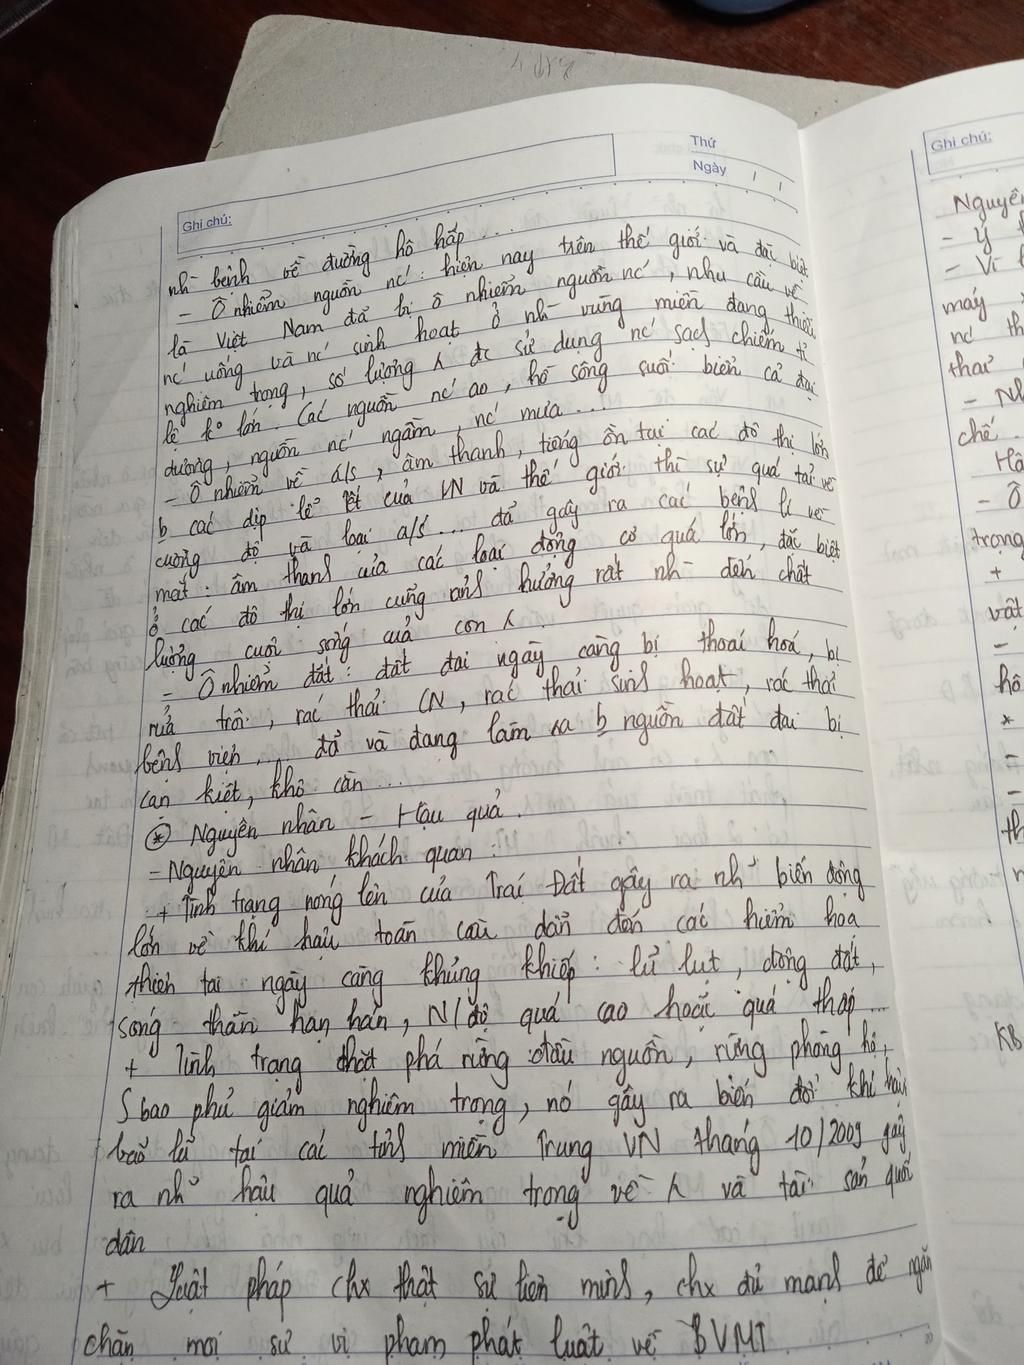 Thứ
Ngày
Ghi chú:
nh~ bệnh về đường hô hấp ...
- Ô nhiểm nguồn nc': hiện nay trên thế giới và đặc biệt
là Việt Nam đã bị ô nhiểm nguồn nc', nhu cầu về
nc' uống và nc' sinh hoạt ở nh~ vùng miền đang thiếu
nghiêm trọng, số lượng đc sử dụng nc' sạch chiếm tỉ
lệ ko lớn. Các nguồn nc' ao, hồ sông suối biển cả đại
dương, nguồn nc' ngầm, nc' mưa ...
- Ô nhiểm về a/s, âm thanh, tiếng ồn tại các đô thị lớn
các dịp lể tết của VN và thế giới thì sự quá tải về
cường độ và loại a/s ... đã gây ra các bệnh lí về
mắt: âm thanh của các loại động cơ quá lớn, đặc biệt
ở các đô thị lớn cũng ảnh hưởng rất nh~ đến chất
lượng cuôi sống của con
- Ô nhiểm đất: đất đai ngày càng bị thoái hoá, bị
rửa trôi, rác thải CN, rác thải sinh hoạt, rác thải
bệnh viện .... đã và đang làm nguồn đất đai bị
cạn kiệt, khô cằn ...
* Nguyên nhân - Hậu quả.
- Nguyên nhân khách quan:
+ Tình trạng nóng lên của Trái Đất gây ra nh~ biến động
lớn về khí hậu toàn cầu dẫn đến các hiểm họa
thiên tai ngày càng khủng khiếp: lũ lụt, động đất,
sóng thần hạn hán, N/độ quá cao hoặc quá thấp ...
+ Tình trạng phá rừng đầu nguồn, rừng phòng hộ,
S bao phủ giảm nghiêm trọng, nó gây ra biến đổi khí hậu
bảo lũ tại các tỉnh miền Trung VN tháng 10/2009 gây
ra nh~ hậu quả nghiêm trọng về và tài sản quốc
dân
+ Luật pháp chx thật sự liên minh, chx đủ mạnh để ngăn
chặn mọi sự vi phạm phát luật về BVMT
Ghi chú:
Nguyên
- Ý
- Vì
máy
nc'
thải
chế
- Ô
trọng
+
vật
-
hô
*
-
-
KB